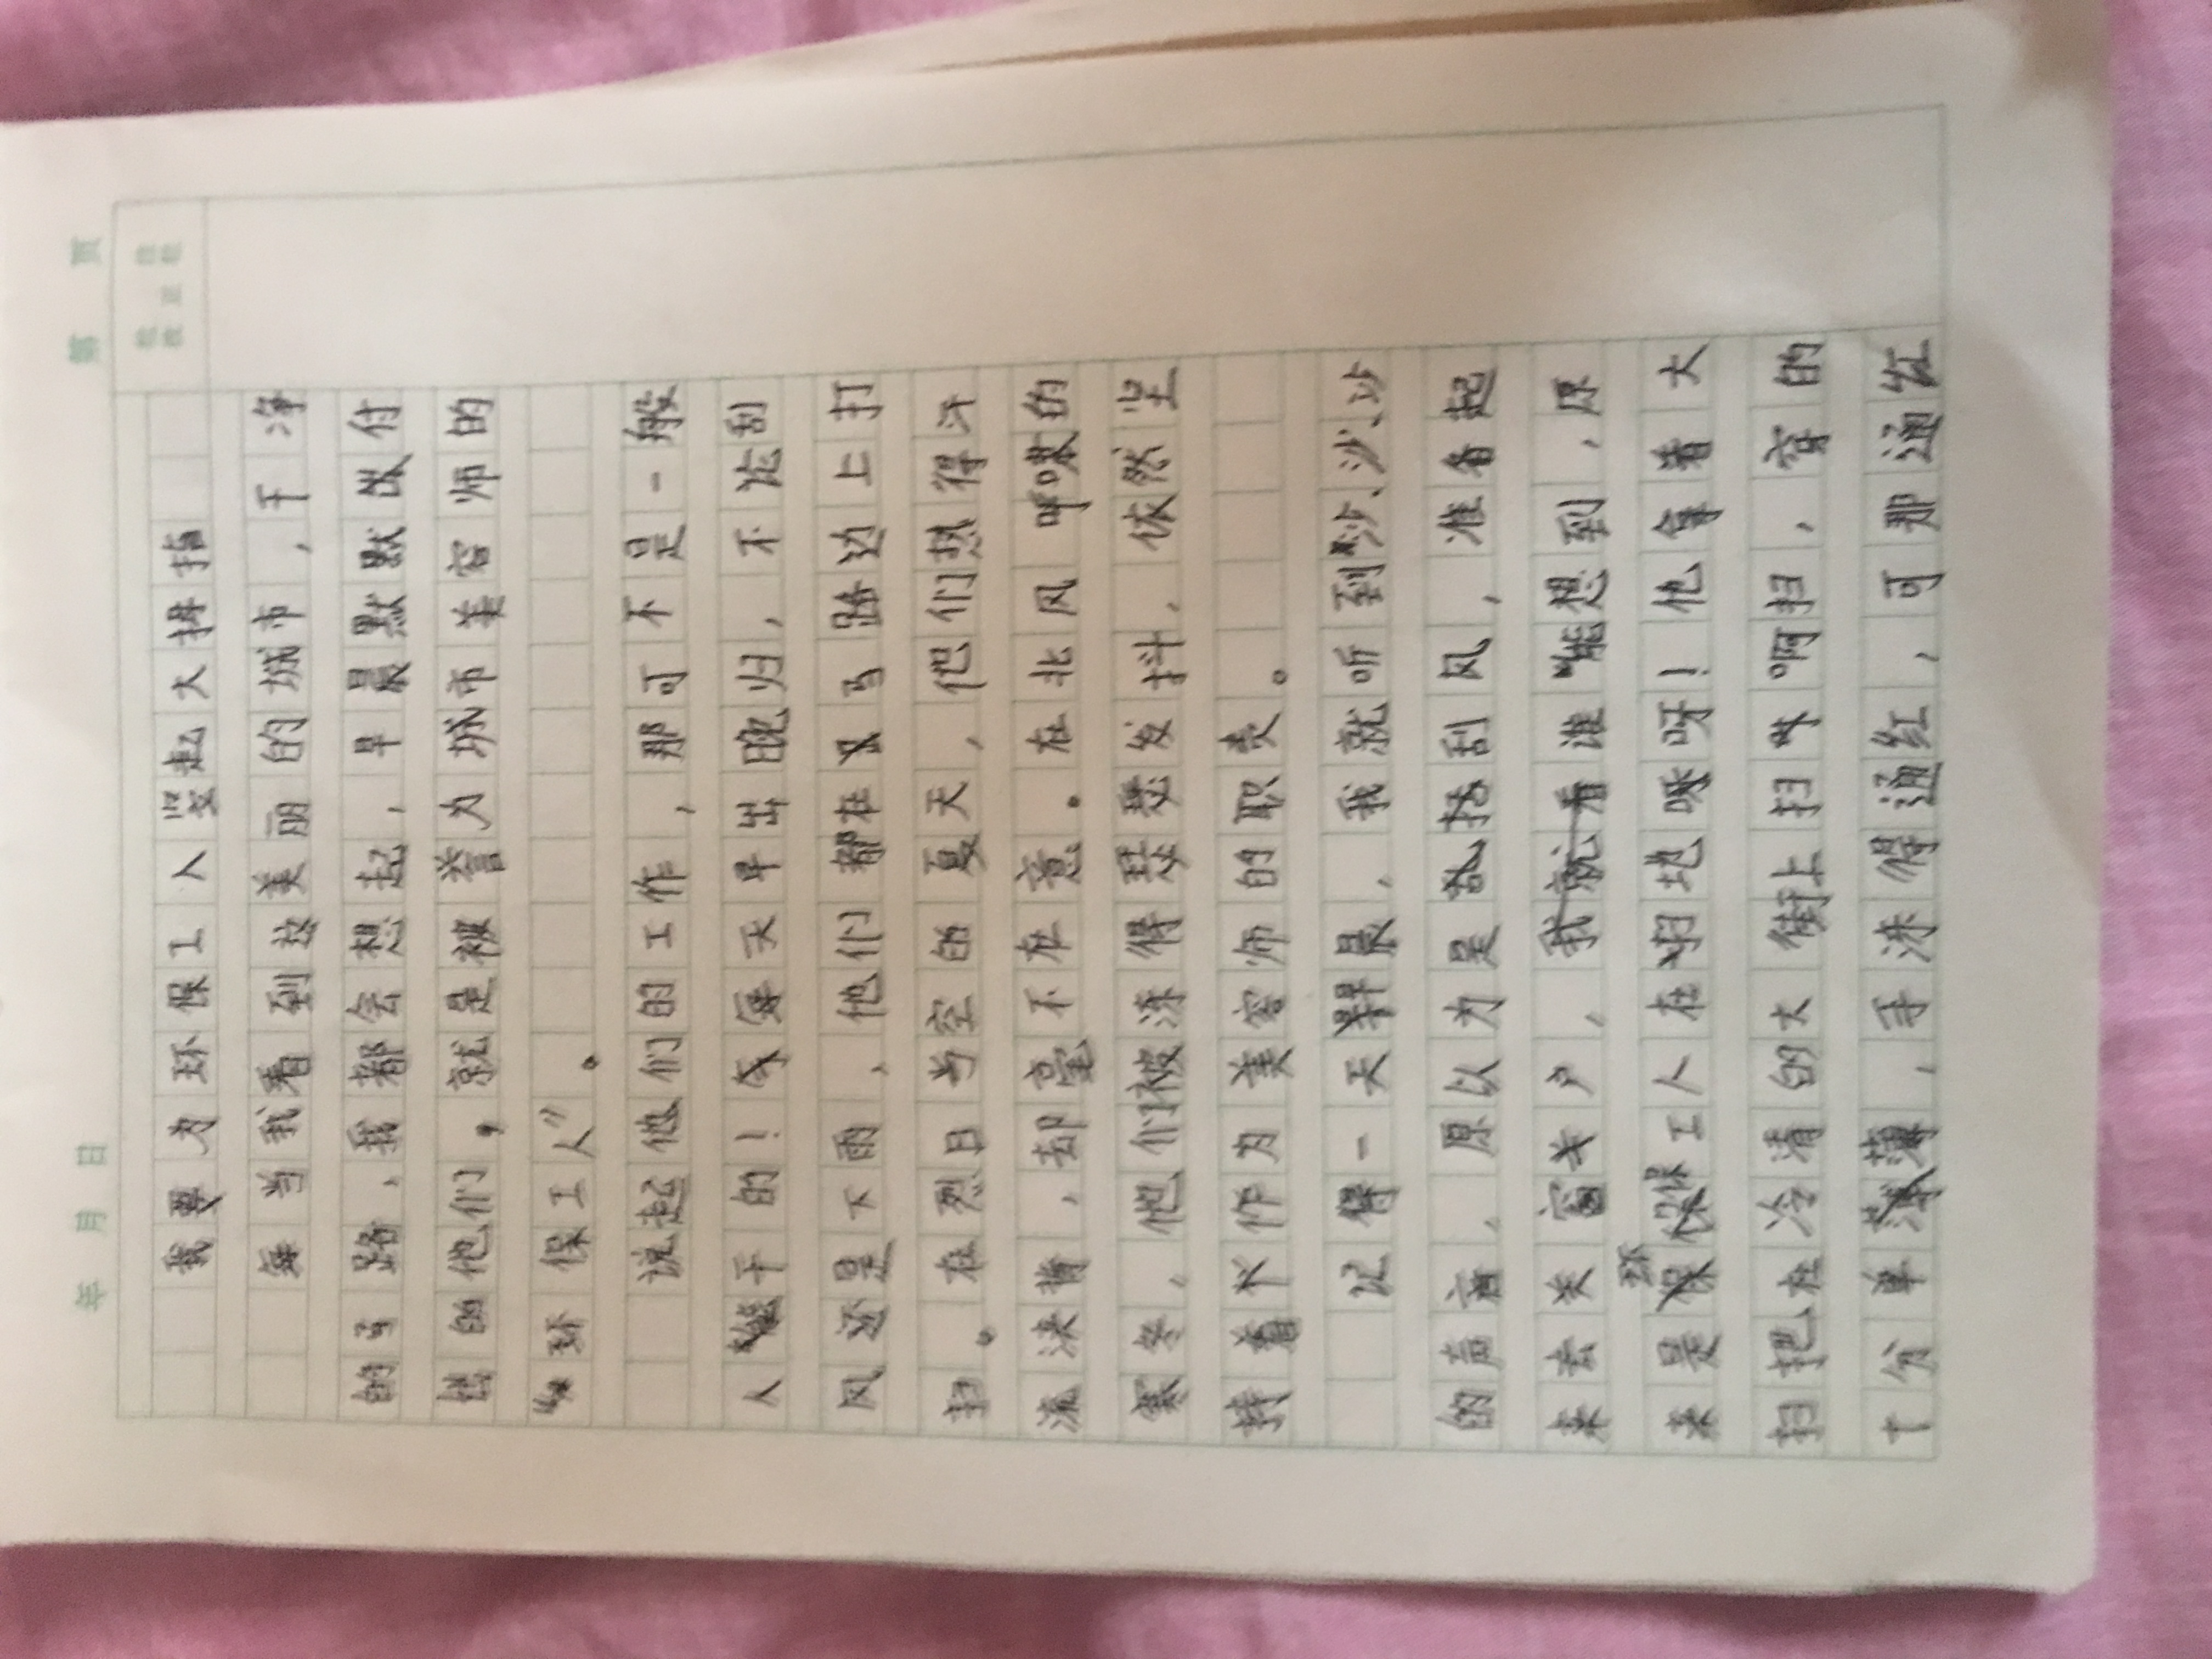 年 月 日
第 页
我要为环保工人竖起大拇指
每当我看到这美丽的城市,干净
的马路,我都会想起,早晨默默做付
出的他们,就是被誉为城市美容师的
“环保工人”。
说起他们的工作,那可不是一般
人能干的!每天早出晚归,不论刮
风还是下雨,他们都在马路边上打
扫。在烈日当空的夏天,他们热得汗
流浃背,却毫不在意。在北风呼啸的
寒冬,他们被冻得瑟瑟发抖,依然坚
持着作为美容师的职责。
记得一天早晨,我就听到沙、沙、沙
的声音,原以为是刮风,准备起
来去关窗户,谁想到,原
来是环保工人在扫地呀!他拿着大
扫把在冷清的大街上扫啊扫,穿的
十分单薄,手冻得通红,可那通红